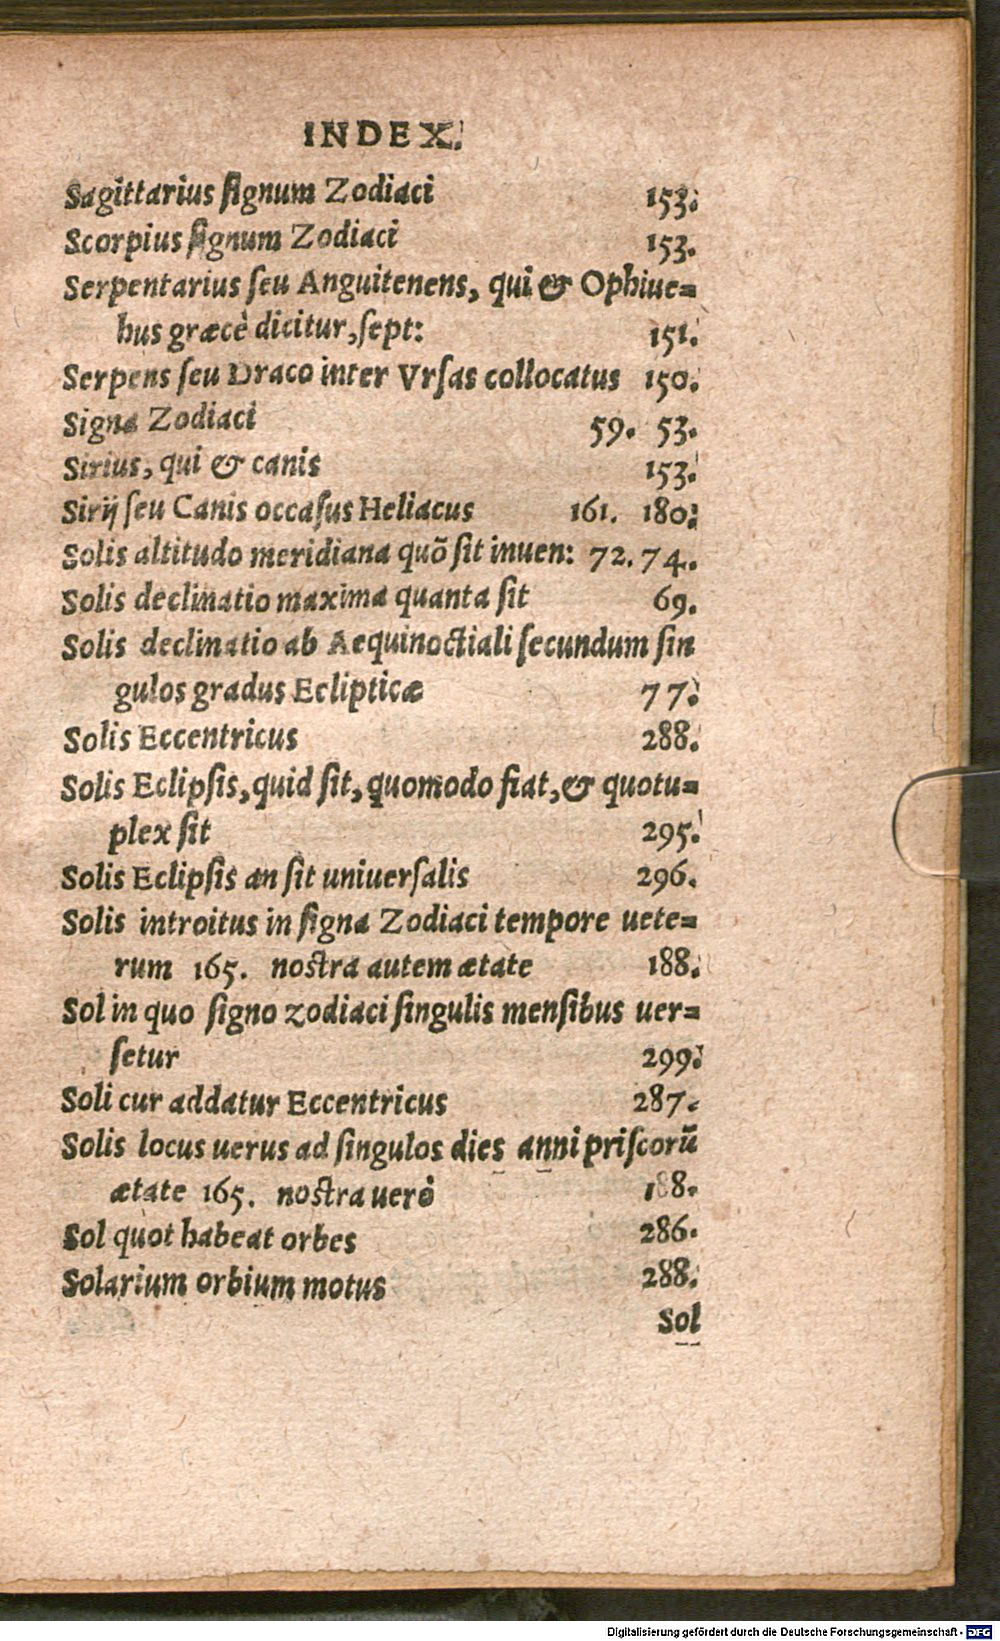 INDEX.
Sagittarius ſignum Zodiaci 153.
Scorpius ſignum Zodiaci 153.
Serpentarius ſeu Anguitenens, qui & Ophiuc=
hus græcè dicitur,ſept: 151.
Serpens ſeu Draco inter Vrſas collocatus 150.
Signa Zodiaci 59. 53.
Sirius, qui & canis 153.
Sirij ſeu Canis occaſus Heliacus 161. 180.
Solis altitudo meridiana quō ſit inuen: 72.74.
Solis declinatio maxima quanta ſit 69.
Solis declinatio ab Aequinoctiali ſecundum ſin
gulos gradus Eclipticæ 77.
Solis Eccentricus 288.
Solis Eclipſis,quid ſit,quomodo fiat,& quotu=
plex ſit 295.
Solis Eclipſis an ſit uniuerſalis 296.
Solis introitus in ſigna Zodiaci tempore uete=
rum 165. noſtra autem ætate 188.
Sol in quo ſigno zodiaci ſingulis menſibus uer=
ſetur 299.
Soli cur addatur Eccentricus 287.
Solis locus uerus ad ſingulos dies anni priſcorū
ætate 165. noſtra uerò 188.
Sol quot habeat orbes 286.
Solarium orbium motus 288.
Sol
Digitalisierung gefördert durch die Deutsche Forschungsgemeinschaft - DFG